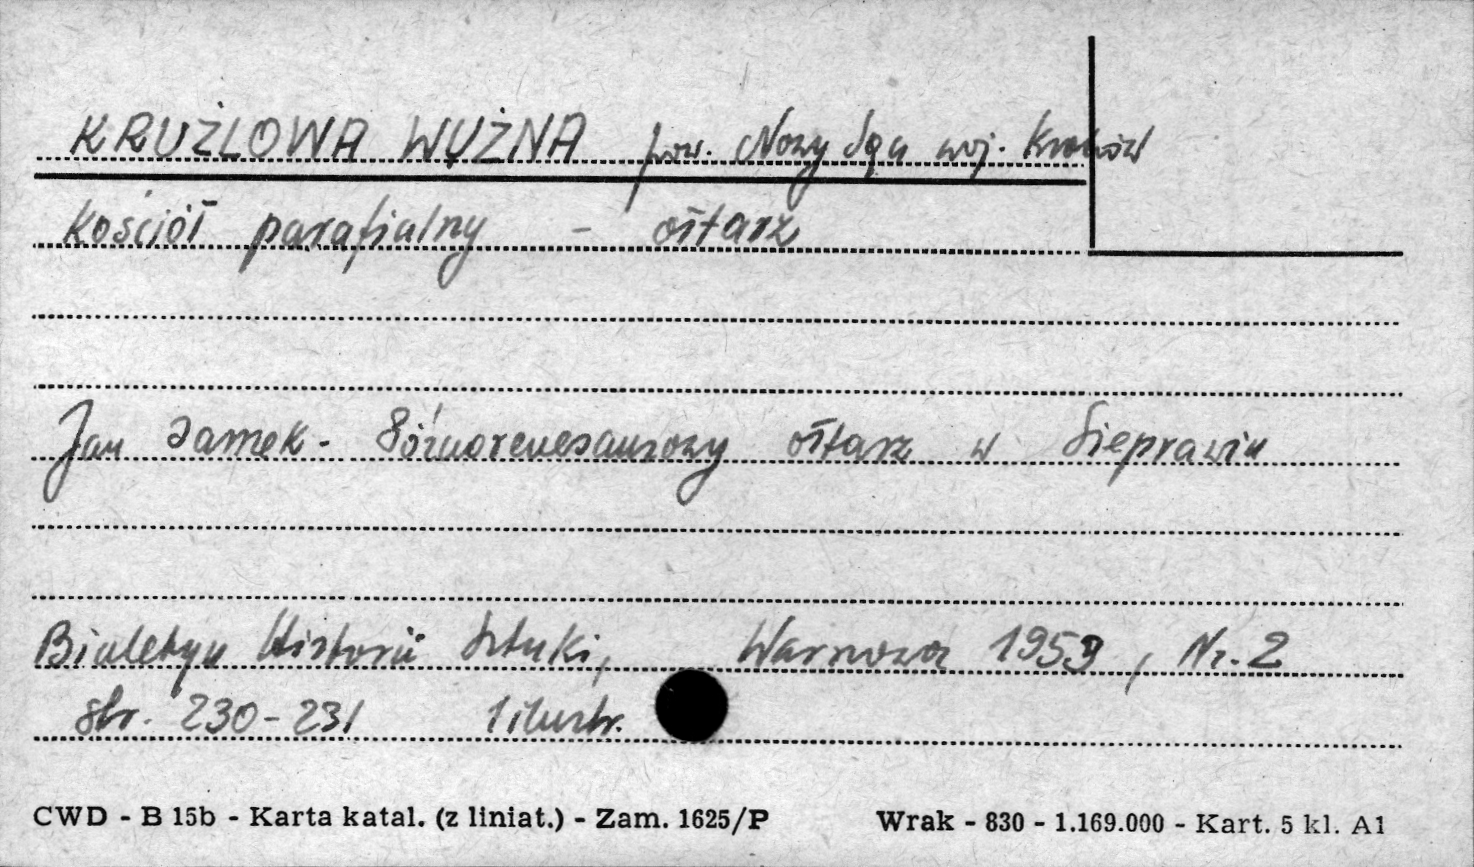 KRUŻLOWA WYŻNA pow. Nowy Sącz woj. Kraków
Kościół parafialny - ołtarz
Jan Samek - Późnorenesansowy ołtarz w Sieprawiu
Biuletyn Historii Sztuki, Warszawa 1959, Nr. 2
str. 230-231 1 ilustr.
CWD - B 15b - Karta katal. (z liniat.) - Zam. 1625/P Wrak - 830 - 1.169.000 - Kart. 5 kl. A1